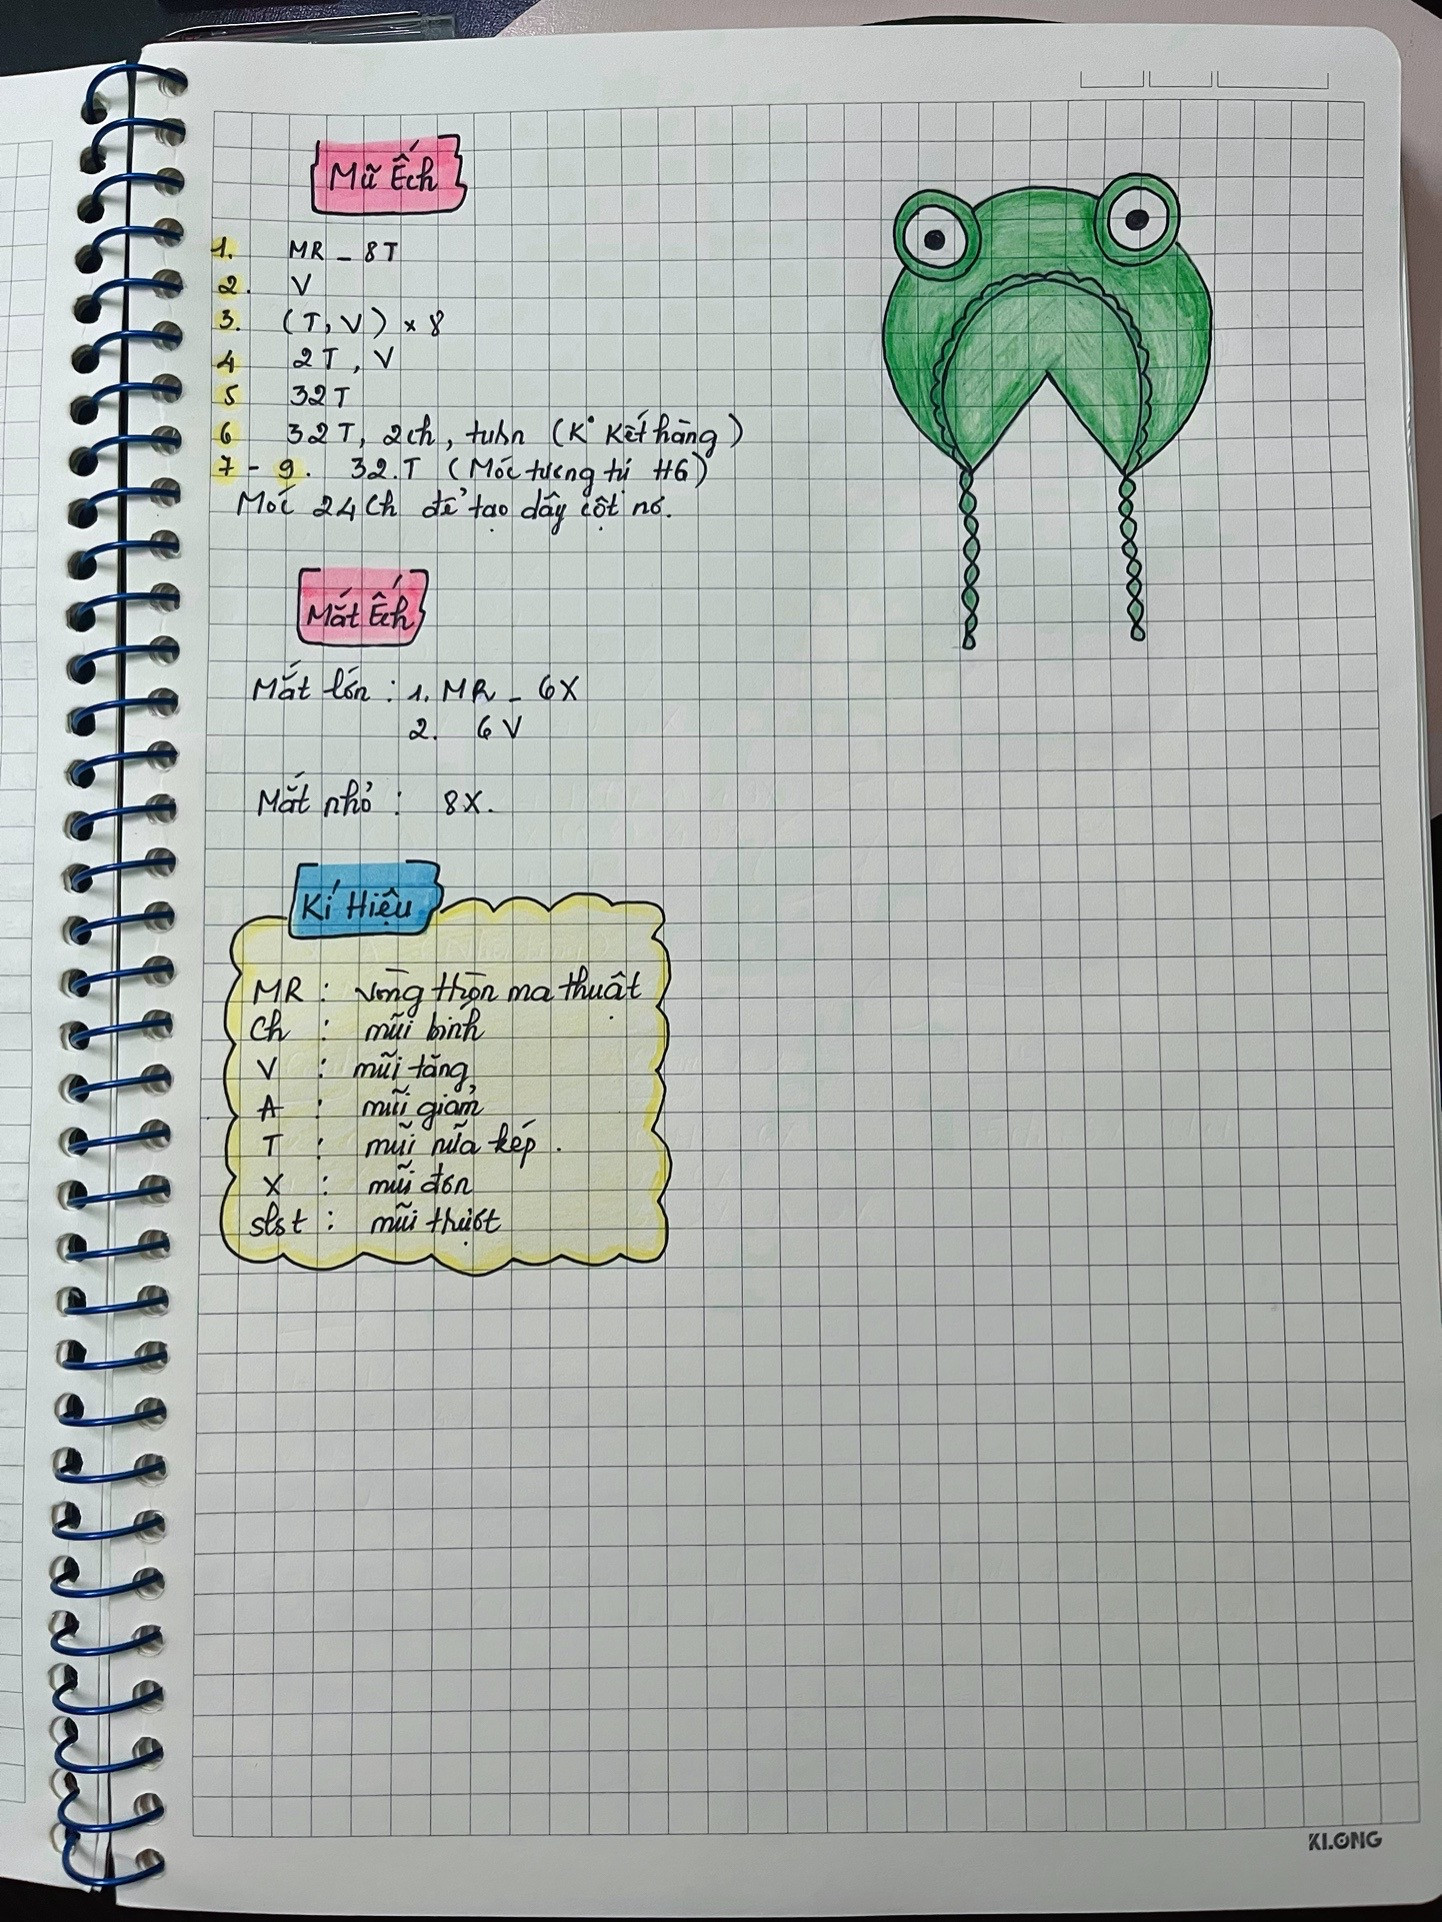 Mũ Ếch
1. MR - 8T
2. V
3. (T, V) x 8
4 2T, V
5 32T
6 32T, 2ch, turn (K° Kết hàng)
7 - 9. 32.T (Móc tương tự #6)
Móc 24Ch để tạo dây cột nơ.
Mắt Ếch
Mắt lớn : 1. MR - 6X
2. 6V
Mắt nhỏ : 8X.
Kí Hiệu
MR : vòng tròn ma thuật
Ch : mũi bính
V : mũi tăng
A : mũi giảm
T : mũi nửa kép.
X : mũi đơn
slst : mũi trượt
KLONG